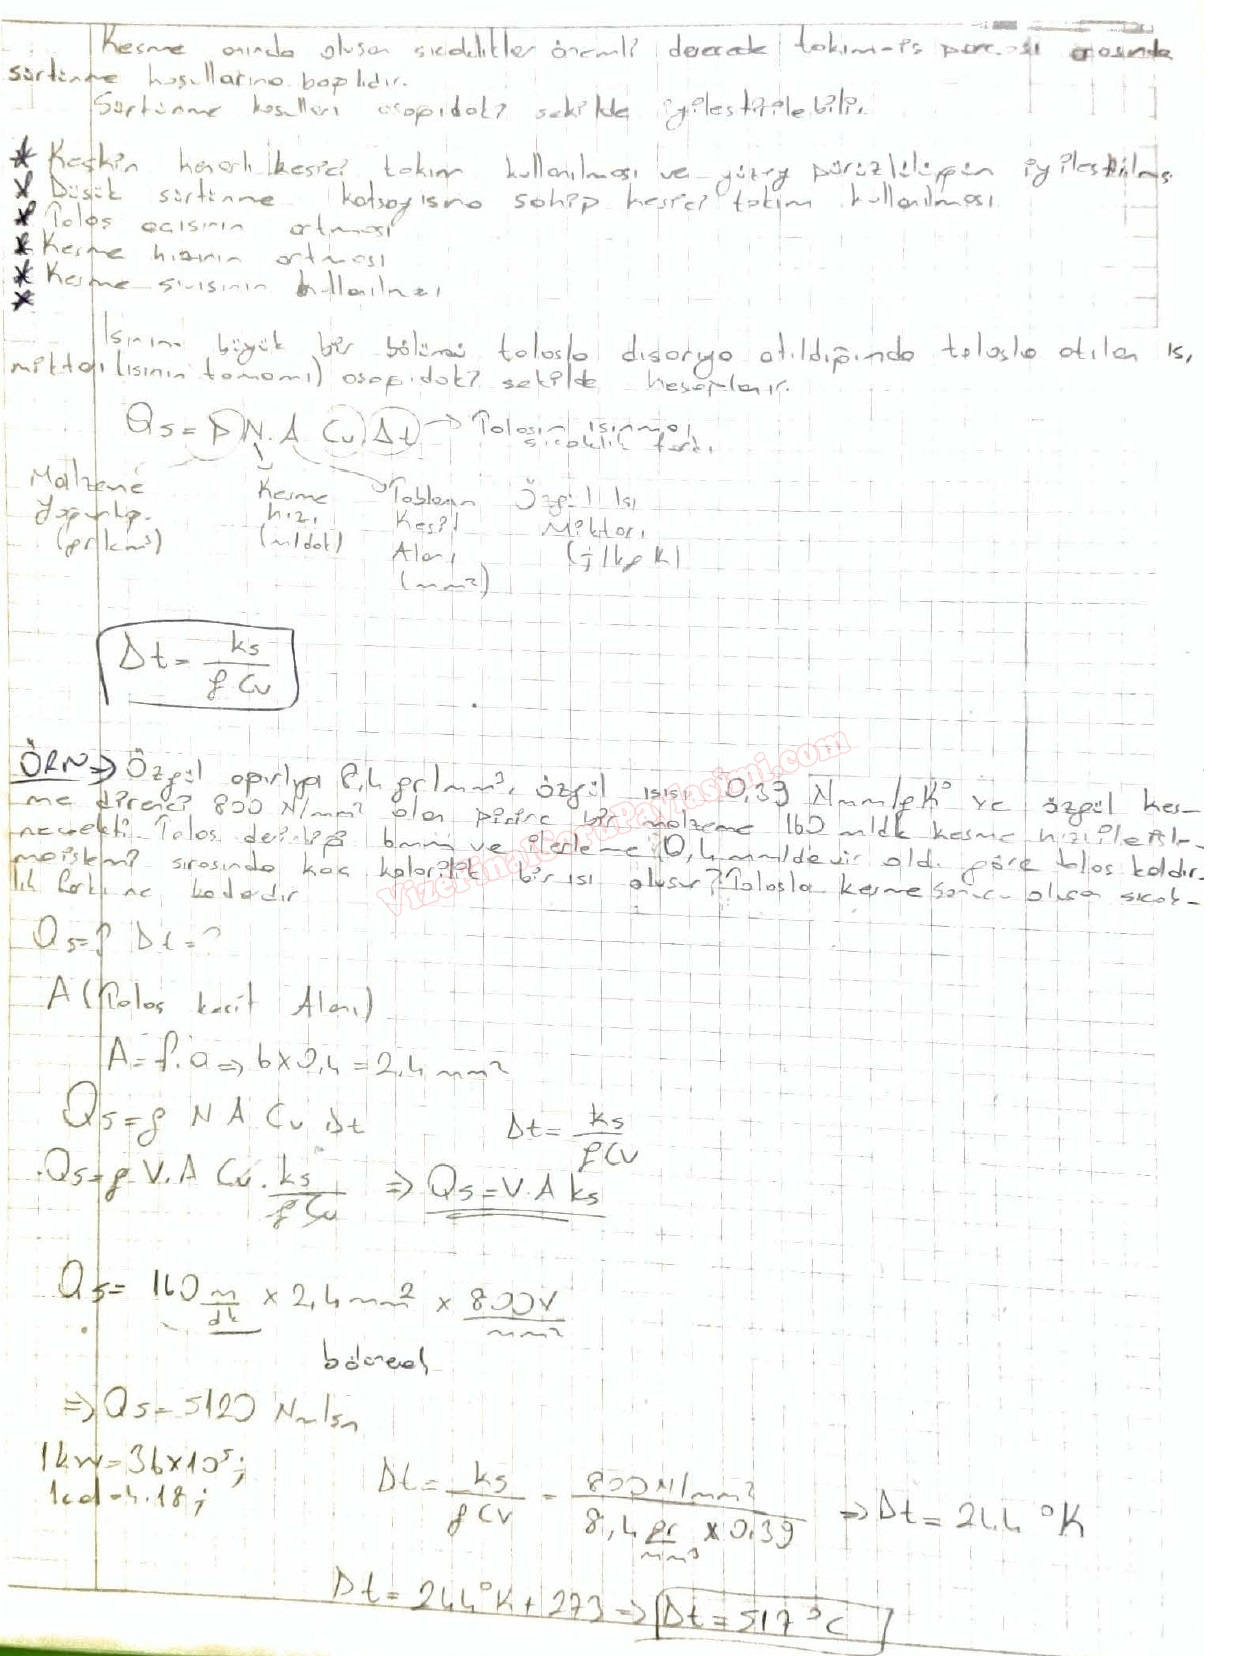 Kesme anında oluşan sıcaklıklar önemli derecede takım-iş parçası arasında
sürtünme koşullarına bağlıdır.
Sürtünme koşulları aşağıdaki şekilde iyileştirilebilir.
* Keskin kenarlı kesici takım kullanılması ve yüzey pürüzlülüğün iyileştirilmesi
* Düşük sürtünme katsayısına sahip kesici takım kullanılması
* Talaş açısının artması
* Kesme hızının artması
* Kesme sıvısının kullanılması
*
Isının büyük bir bölümü talaşla dışarıya atıldığında talaşla atılan ısı
miktarı (ısının tamamı) aşağıdaki şekilde hesaplanır.
Qs = ρ V. A Cv Δt → Talaşın ısınması
sıcaklık farkı
Malzeme Kesme Talaşın Özgül Isı
Yoğunluğ. hızı Kesit Miktarı
(gr/cm³) (m/dak) Alanı (j/kg K)
(mm²)
Δt = ks / ρ Cv
ÖRN ⇒ Özgül ağırlığı 8,4 gr/mm³, özgül ısısı 0,39 Nmm/gK° ve özgül kes-
me direnci 800 N/mm² olan pirinç bir malzeme 160 m/dk kesme hızı ile
Talaş derinliği 6mm ve ilerleme 0,4 mm/devir old. göre talaş kaldır-
ma işlemi sırasında kaç kalorilik bir ısı oluşur? Talaşla kesme sonucu oluşan sıcak-
lık farkı ne kadardır
VizeFinalNotPaylasimi.com
Qs=? Δt=?
A (Talaş kesit Alanı)
A = f.a ⇒ 6x0,4 = 2,4 mm²
Qs = ρ V A Cv Δt Δt = ks / ρ Cv
Qs = ρ V. A Cv. ks / ρ Cv ⇒ Qs = V. A ks
Qs = 160 m/dk x 2,4 mm² x 800 N/mm²
⇒ Qs = 5120 Nm/sn
1kw = 36x10⁵ j
1cal = 4.18 j
Δt = ks / ρ Cv = 800 N/mm² / 8,4 gr/mm³ x 0.39 ⇒ Δt = 244 °K
Δt = 244°K + 273 ⇒ Δt = 517 °C